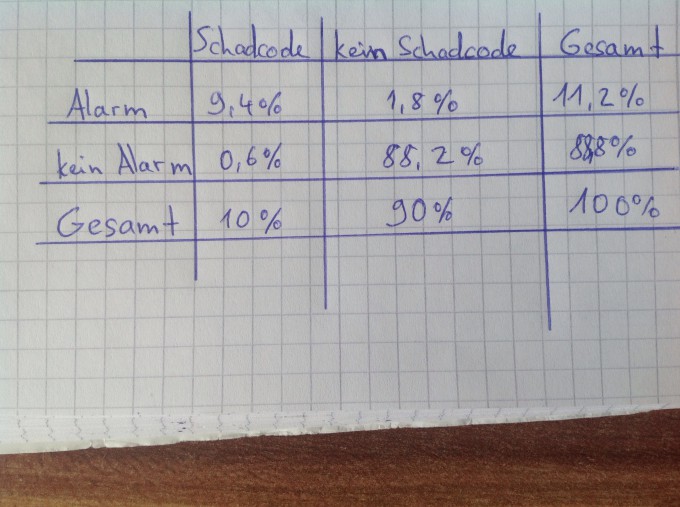 Schadcode kein Schadcode Gesamt
Alarm 9,4% 1,8% 11,2%
kein Alarm 0,6% 88,2% 88,8%
Gesamt 10% 90% 100%